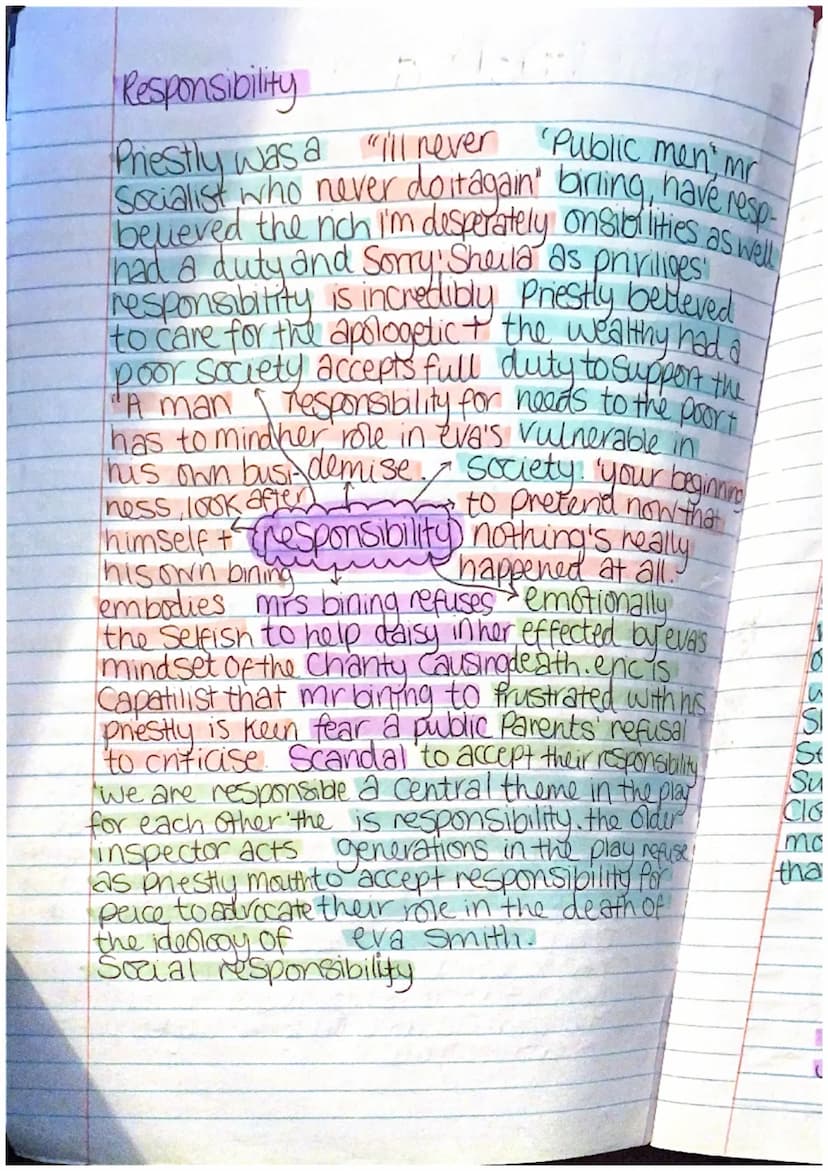 Responsibility
Priestly was a
socialist who
believed the rich
had a duty and
responsibility
to care for the
poor society
"i'll never
never do it again"
I'm desperately
sorry' Sheila
is incredibly
apologetic +
accepts full
responsibility for
her role in eva's
demise.
'Public men', mr
birling, have resp-
onsibilities as well
as priviliges'
Priestly believed
the wealthy had a
duty to support the
needs to the poor +
vulnerable in
society.
"A man
has to mind
his own busi-
ness, look after
himself +
his own birling
embodies
the selfish
mindset of the
capatilist that
priestly is keen
to criticise.
responsibility
'your beginning
to pretend now that
nothing's really
happened at all.'
emotionally
effected by eva's
death. eric is
frustrated with his
parents' refusal
to accept their responsibility
mrs birling refuses
to help daisy in her
charity causing
mr birling to
fear a public
scandal
'we are responsible
for each other' the
inspector acts
as priestly mouth
peice to advocate
the ideology of
social responsibility
a central theme in the play
is responsibility. the older
generations in the play refuse
to accept responsibility for
their role in the death of
eva smith.